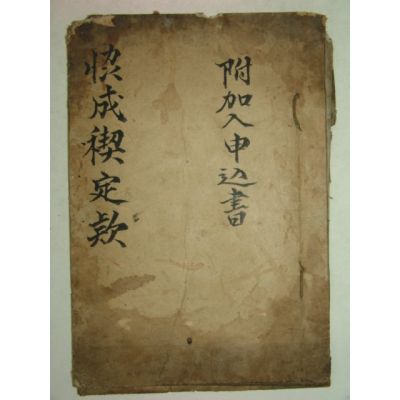 附加入申込書
恢成稧定款